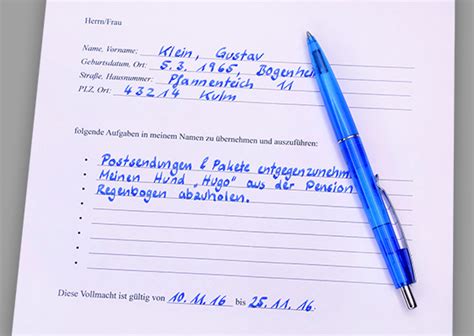 Herrn/Frau
Name, Vorname: Klein, Gustav
Geburtsdatum, Ort: 5. 3. 1965, Bogenhei
Straße, Hausnummer: Pfannenteich 11
PLZ, Ort: 43214 Kulm
folgende Aufgaben in meinem Namen zu übernehmen und auszuführen:
Postsendungen & Pakete entgegenzunehm.
Meinen Hund „Hugo" aus der Pension
Regenbogen abzuholen.
Diese Vollmacht ist gültig von 10. 11. 16 bis 25. 11. 16.